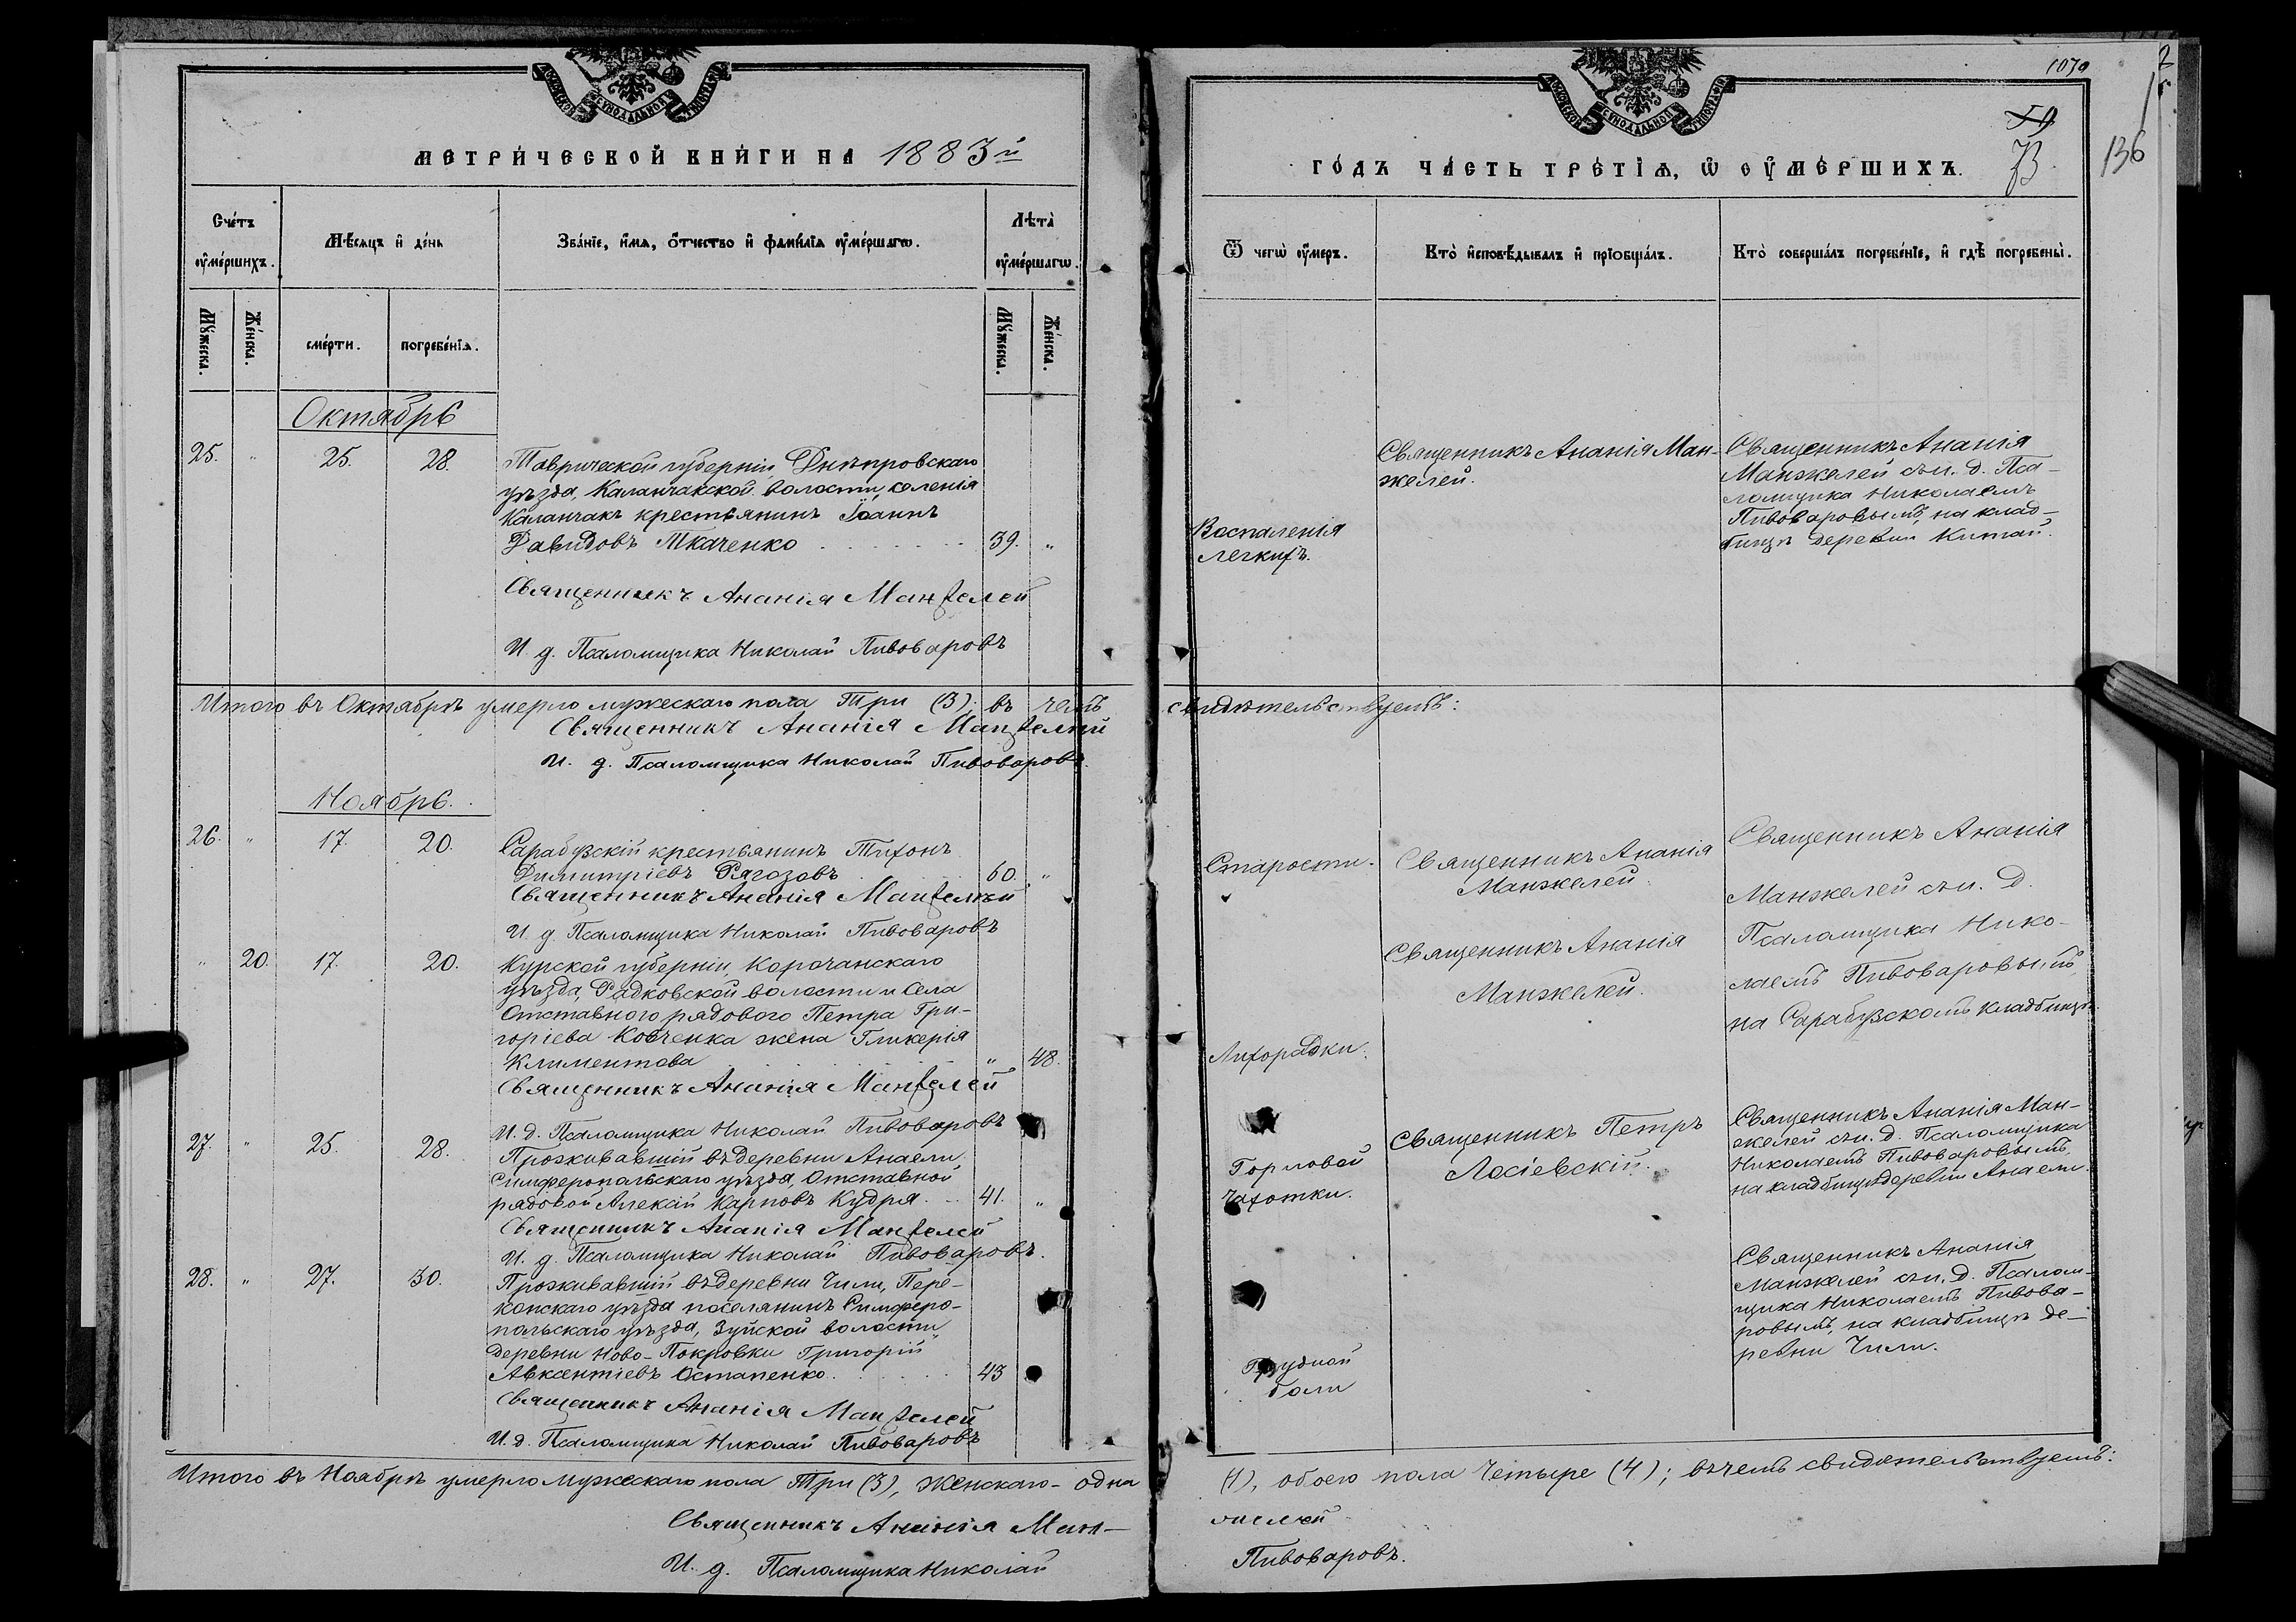 МЕТРИЧЕСКОЙ КНИГИ НА 1883й
Счетъ умершихъ.
Мѣсяцъ и день
Званіе, имя, отчество и фамилія умершаго.
Лѣта умершаго.
Мужеска.
Женска.
смерти.
погребенія.
Мужеска.
Женска.
Октябрь
25. " 25. 28. Таврической губерніи Днѣпровскаго
уѣзда, Каланчакской волости, селенія
Каланчакъ крестьянинъ Іоаннъ
Давидовъ Ткаченко 39. "
Священникъ Ананія Манжелей
И. д. Псаломщика Николай Пивоваровъ
Итого въ Октябрѣ умерло мужескаго пола Три (3); въ чемъ
Священникъ Ананія Манжелей
И. д. Псаломщика Николай Пивоваровъ
Ноябрь.
26. " 17. 20. Сарабузскій крестьянинъ Тихонъ
Димитріевъ Рагозовъ 60. "
Священникъ Ананія Манжелей
И. д. Псаломщика Николай Пивоваровъ
" 20. 17. 20. Курской губерніи, Корочанскаго
уѣзда, Радковской волости и села
Отставного рядового Петра Гри-
горіева Ковченка жена Гликерія
Климентова " 48.
Священникъ Ананія Манжелей
И. д. Псаломщика Николай Пивоваровъ
27. " 25. 28. Проживавшій въ деревни Анаели
Симферопольскаго уѣзда, Отставной
рядовой Алексій Карповъ Кудря 41. "
Священникъ Ананія Манжелей
И. д. Псаломщика Николай Пивоваровъ.
28. " 27. 30. Проживавшій въ деревни Чили, Пере-
копскаго уѣзда поселянинъ Симферо-
польскаго уѣзда, Зуйской волости
деревни Ново-Покровки Григорій
Авксентіевъ Остапенко 43
Священникъ Ананія Манжелей
И. д. Псаломщика Николай Пивоваровъ
Итого въ Ноябрѣ умерло мужескаго пола Три (3), женскаго - одна
Священникъ Ананія Ман-
И. д. Псаломщика Николай
1070
73
136
ГОДЪ ЧАСТЬ ТРЕТІЯ, Ѡ УМЕРШИХЪ.
Ѿ чего умеръ.
Кто исповѣдывалъ и пріобщалъ.
Кто совершалъ погребеніе, и гдѣ погребены.
Воспаленія
легкихъ.
Священникъ Ананія Ман-
желей.
Священникъ Ананія
Манжелей съ и. д. Пса-
ломщика Николаемъ
Пивоваровымъ, на клад-
бищѣ деревни Китай.
свидѣтельствуемъ:
Старости.
Священникъ Ананія
Манжелей.
Священникъ Ананія
Манжелей съ и. д.
Псаломщика Нико-
лаемъ Пивоваровымъ,
на Сарабузскомъ кладбищѣ.
Лихорадки.
Священникъ Ананія
Манжелей.
Горловой
чахотки.
Священникъ Петръ
Лосіевскій.
Священникъ Ананія Ман-
желей съ и. д. Псаломщика
Николаемъ Пивоваровымъ,
на кладбищѣ деревни Анаели.
Грудной
боли
Священникъ Ананія
Манжелей съ и. д. Псалом-
щика Николаемъ Пивова-
ровымъ, на кладбищѣ де-
ревни Чили.
(1), обоего пола Четыре (4); въ чемъ свидѣтельствуемъ:
Пивоваровъ.